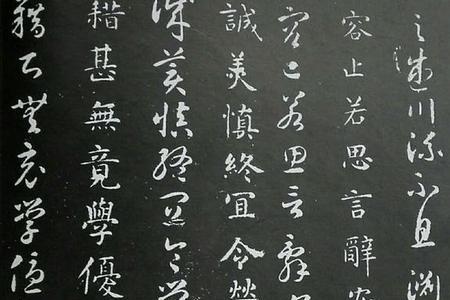 之盛川流不息淵
容止若思言辭安
容止若思言辭
誠美慎終宜令榮
誠美慎終宜令榮
籍甚無竟學優
籍甚無竟學優